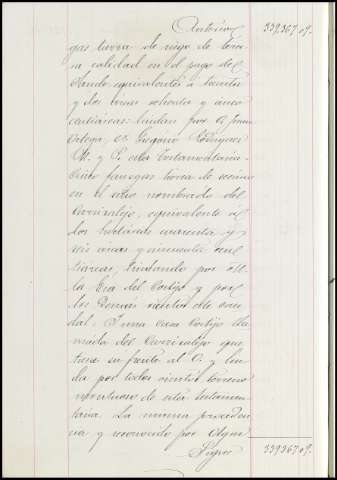 Anterior 339.367 09.
gas tierra de riego de terce-
ra calidad en el pago del
equivalentes a treinta
y dos areas setenta y cinco
centiareas: lindan por a Juan
Ortega, E. Gregorio Rodriguez
M. y P. esta testamentaria.
fanegas tierra de secano
en el sitio nombrado del
equivalente á
dos hectareas cuarenta y
seis areas y cincuenta cen-
tiáreas, lindando por el
la Era del Cortijo y por
los demás vientos de
dal. Y una casa Cortijo lla-
mada del que
tiene su frente al O. y lin-
da por todos vientos terreno
montuoso de esta testamen-
taria. La misma proceden-
cia y reconocido por
Sigue 339367 09.